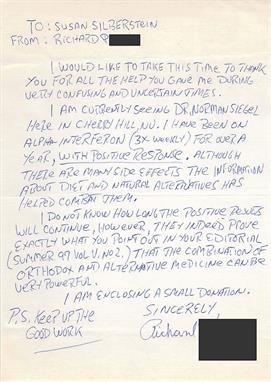 TO: SUSAN SILBERSTEIN
FROM: RICHARD
I WOULD LIKE TO TAKE THIS TIME TO THANK
YOU FOR ALL THE HELP YOU GAVE ME DURING
VERY CONFUSING AND UNCERTAIN TIMES.
I AM CURRENTLY SEEING DR. NORMAN SIEGEL
HERE IN CHERRY HILL, NJ. I HAVE BEEN ON
ALPHA INTERFERON (3X WEEKLY) FOR OVER A
YEAR, WITH POSITIVE RESPONSE. ALTHOUGH
THERE ARE MANY SIDE EFFECTS THE INFORMATION
ABOUT DIET AND NATURAL ALTERNATIVES HAS
HELPED COMBAT THEM.
I DO NOT KNOW HOW LONG THE POSITIVE RESULTS
WILL CONTINUE, HOWEVER, THEY INDEED PROVE
EXACTLY WHAT YOU POINT OUT IN YOUR EDITORIAL
(SUMMER 97 VOL V. NO 2.) THAT THE COMBINATION OF
ORTHODOX AND ALTERNATIVE MEDICINE CAN BE
VERY POWERFUL.
I AM ENCLOSING A SMALL DONATION.
P.S. KEEP UP THE SINCERELY,
GOOD WORK Richard